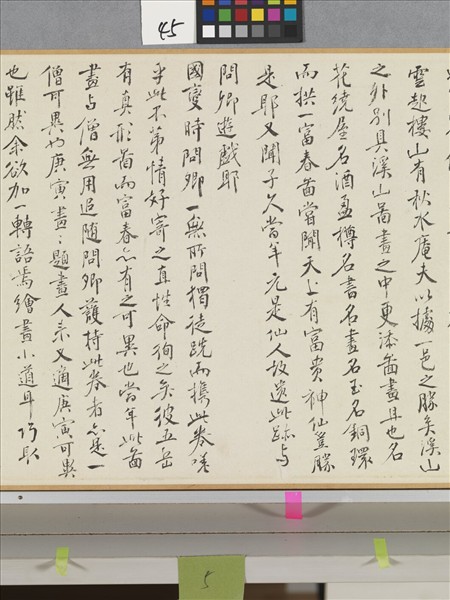 45
雲起樓山有秋水庵夫以據一邑之勝矣溪山
之外別具溪山圖畫之中更添圖畫且也名
花繞屋名酒盈樽名書名畫名玉名銅環
而拱一富春圖嘗聞天上有富貴神仙豈勝
是耶又聞子久當年元是仙人故遺此跡與
問卿遊戲耶
國變時問卿一無所問獨徒跣而攜此卷嗟
乎此不第情好寄之直性命徇之矣彼五岳
有真形圖而富春亦有之可異也當年此圖
畫與僧無用追隨問卿護持此卷者亦是一
僧可異也庚寅畫〻題畫人來又適庚寅可異
也雖然余欲加一轉語焉繪畫小道耳巧取
5